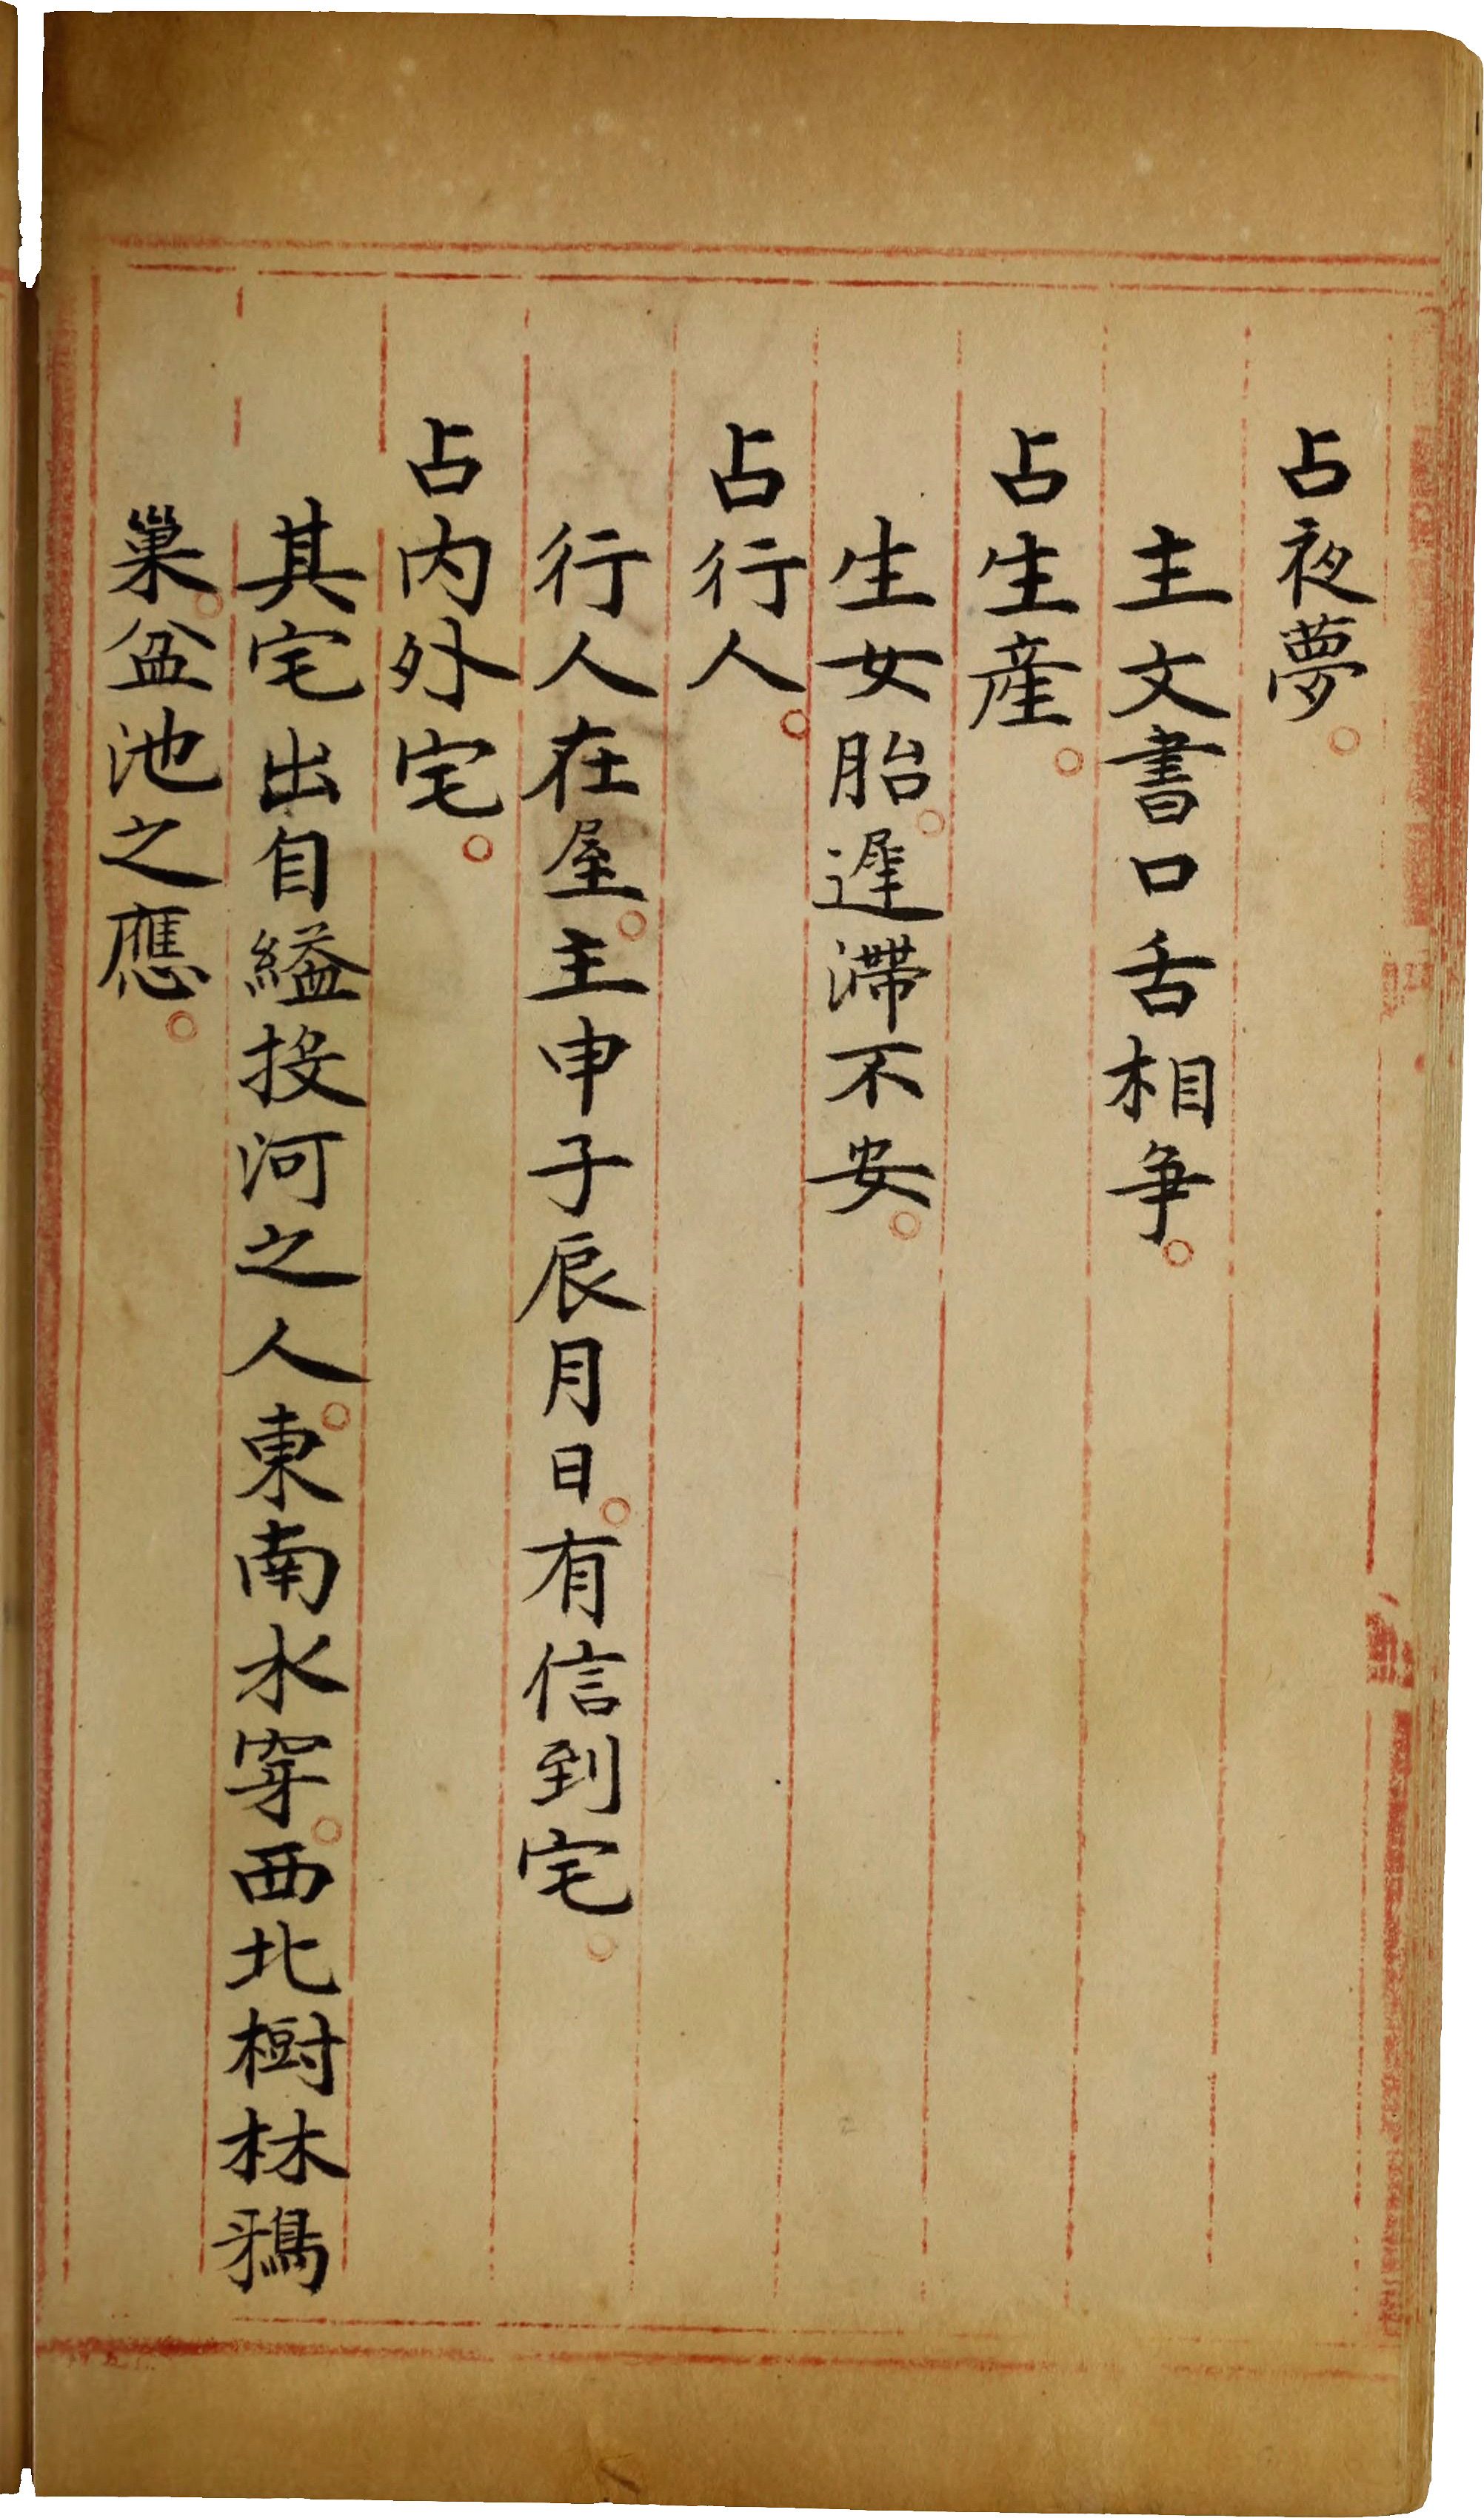 占夜夢。
主文書口舌相爭。
占生產。
生女胎。遲滯不安。
占行人。
行人在屋。主申子辰月日。有信到宅。
占內外宅。
其宅出自縊投河之人。東南水穿。西北樹林鴉
巢。盆池之應。